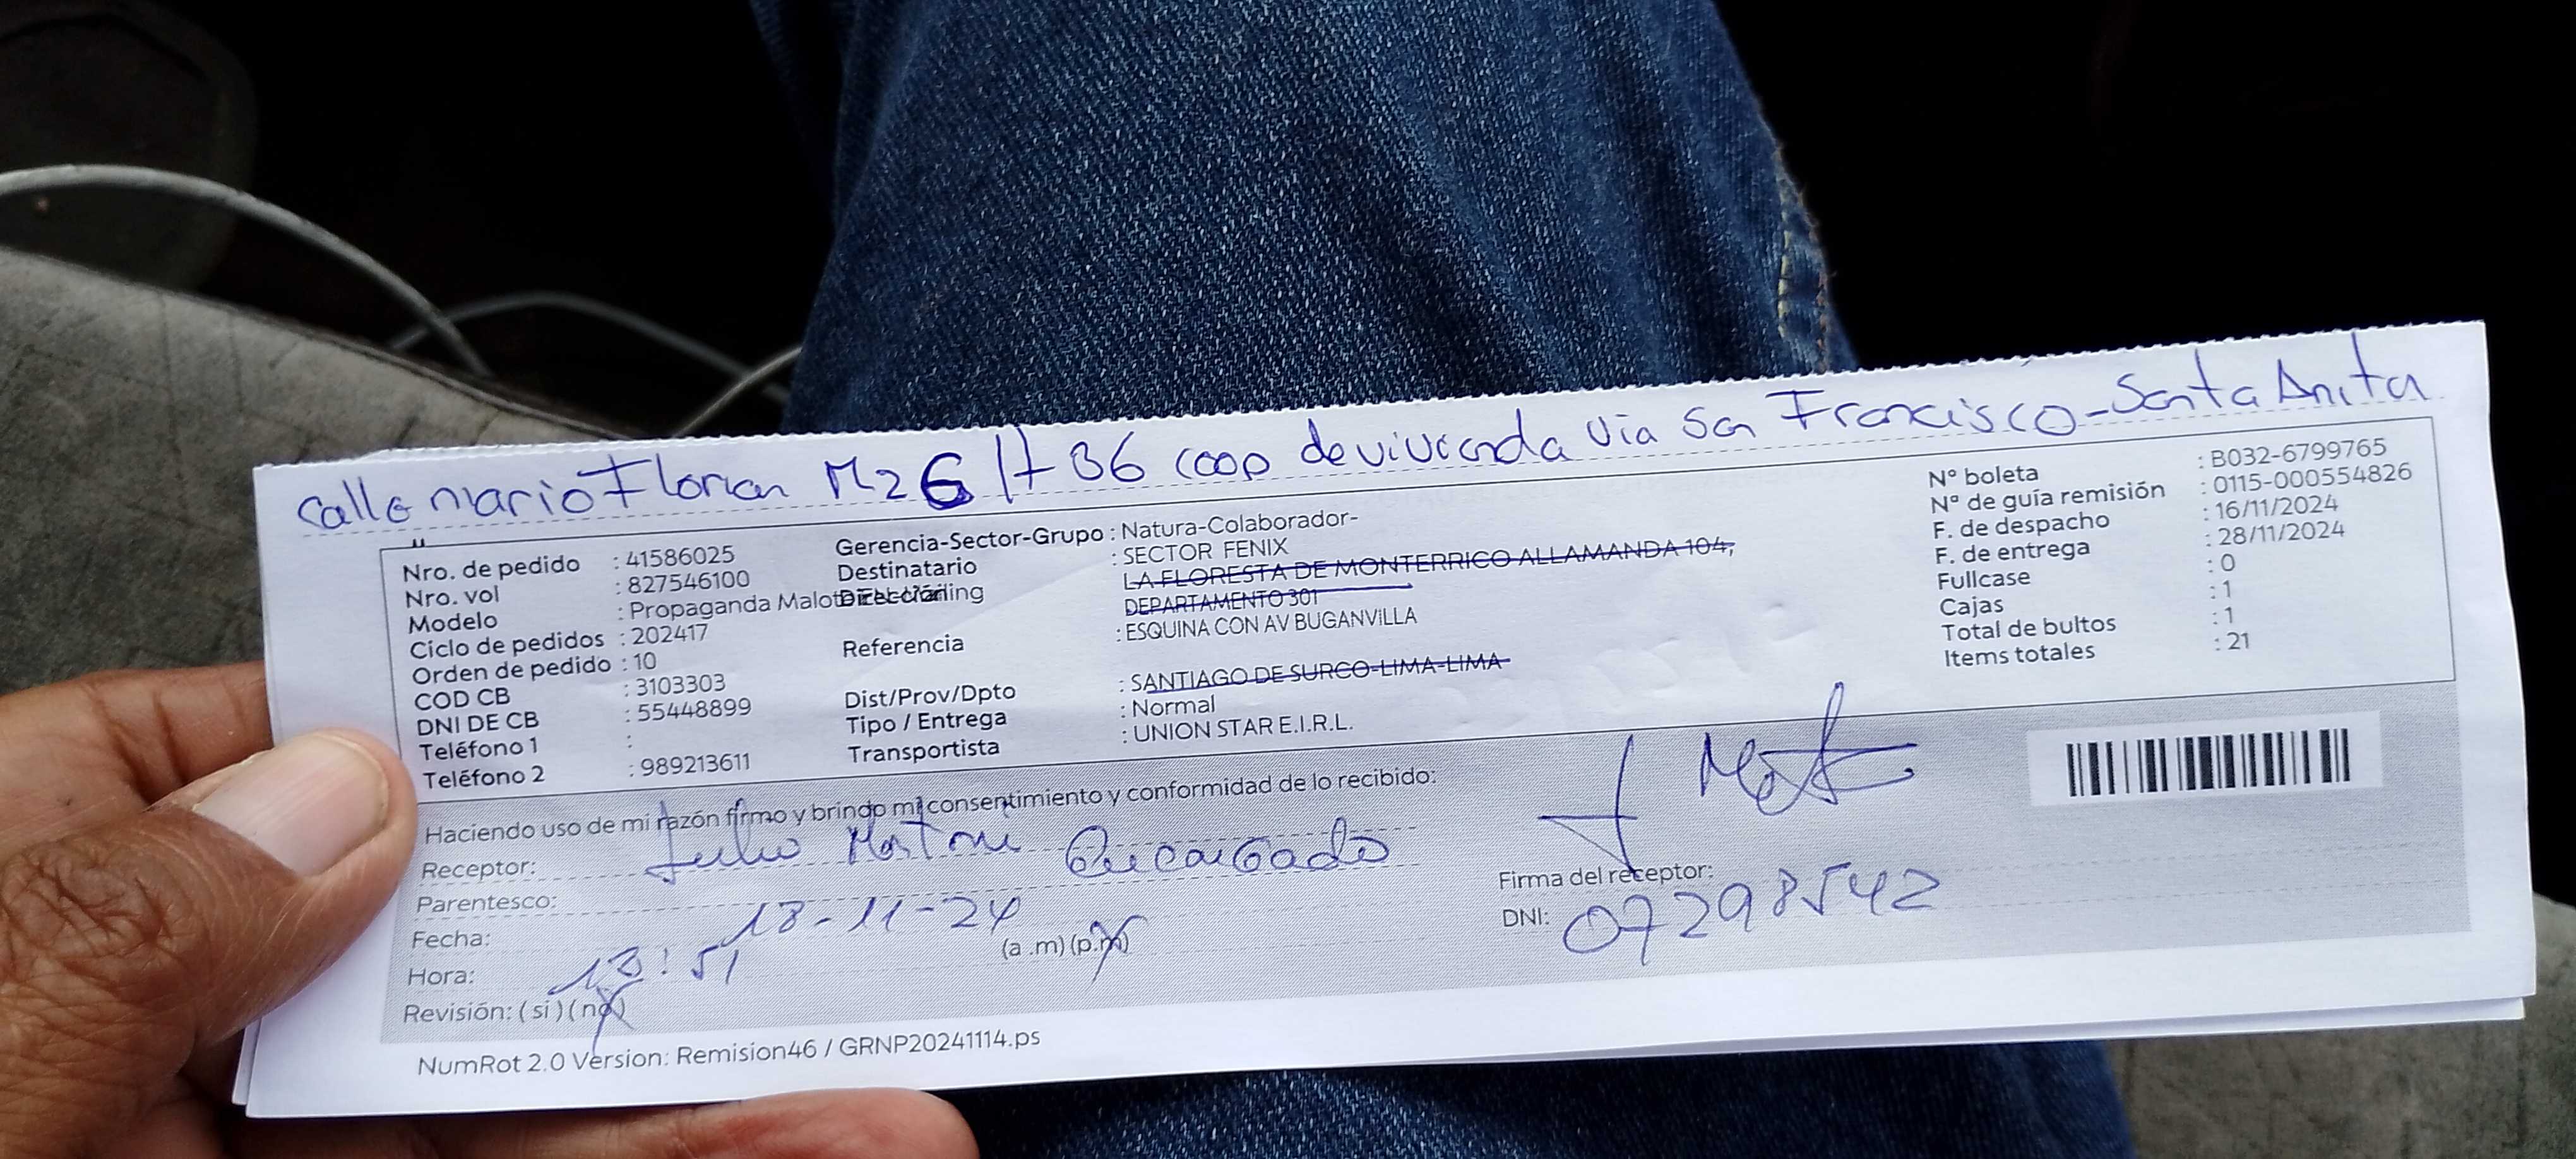 Calle mario Florian Mz G lt 36 coop de vivienda Via San Francisco-Santa Anita
Nro. de pedido : 41586025
Nro. vol : 827546100
Modelo : Propaganda
Ciclo de pedidos : 202417
Orden de pedido : 10
COD CB : 3103303
DNI DE CB : 55448899
Teléfono 1 :
Teléfono 2 : 989213611
Gerencia-Sector-Grupo : Natura-Colaborador-
Destinatario : SECTOR FENIX
Dirección : LA FLORESTA DE MONTERRICO ALLAMANDA 104,
DEPARTAMENTO 301
Referencia : ESQUINA CON AV BUGANVILLA
Dist/Prov/Dpto : SANTIAGO DE SURCO-LIMA-LIMA
Tipo / Entrega : Normal
Transportista : UNION STAR E.I.R.L.
N° boleta : B032-6799765
N° de guía remisión : 0115-000554826
F. de despacho : 16/11/2024
F. de entrega : 28/11/2024
Fullcase : 0
Cajas : 1
Total de bultos : 1
Items totales : 21
Haciendo uso de mi razón firmo y brindo mi consentimiento y conformidad de lo recibido:
Receptor: Julio Encargado
Parentesco:
Fecha: 18-11-24
Hora: 18:51 (a .m) (p.m)
Revisión: ( si ) ( no )
Firma del receptor:
DNI: 07298542
NumRot 2.0 Version: Remision46 / GRNP20241114.ps